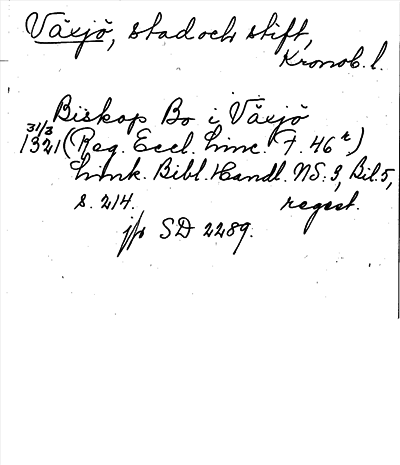 Växjö, stad och stift,
Kronob. l.
Biskop Bo i Växjö
31/3
1321 (Reg. Eccl. Linc. F. 46 r,)
Link. Bibl. Handl. NS: 3, Bil. 5,
s. 214. regest.
jfr SD 2289.